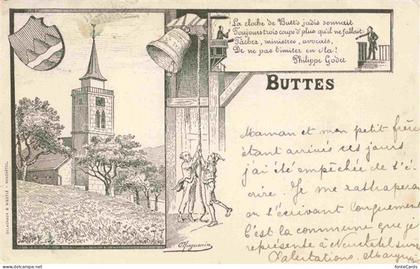 La cloche de Butt's jadis sonnait
Toujours trois coups d'plus qu'il ne fallait:
Tâchez, ministres, avocats,
De ne pas l'imiter en c'la!
Philippe Godet
BUTTES
Maman et mon petit frère
étant arrivés ces jours
j'ai été empêchée de t'é-
crire. Je me rattraperai
en t'écrivant longuement
C'est la commune que je
représente à Neuchâtel
Salutations.
DELACHAUX & NIESTLÉ - NEUCHÂTEL